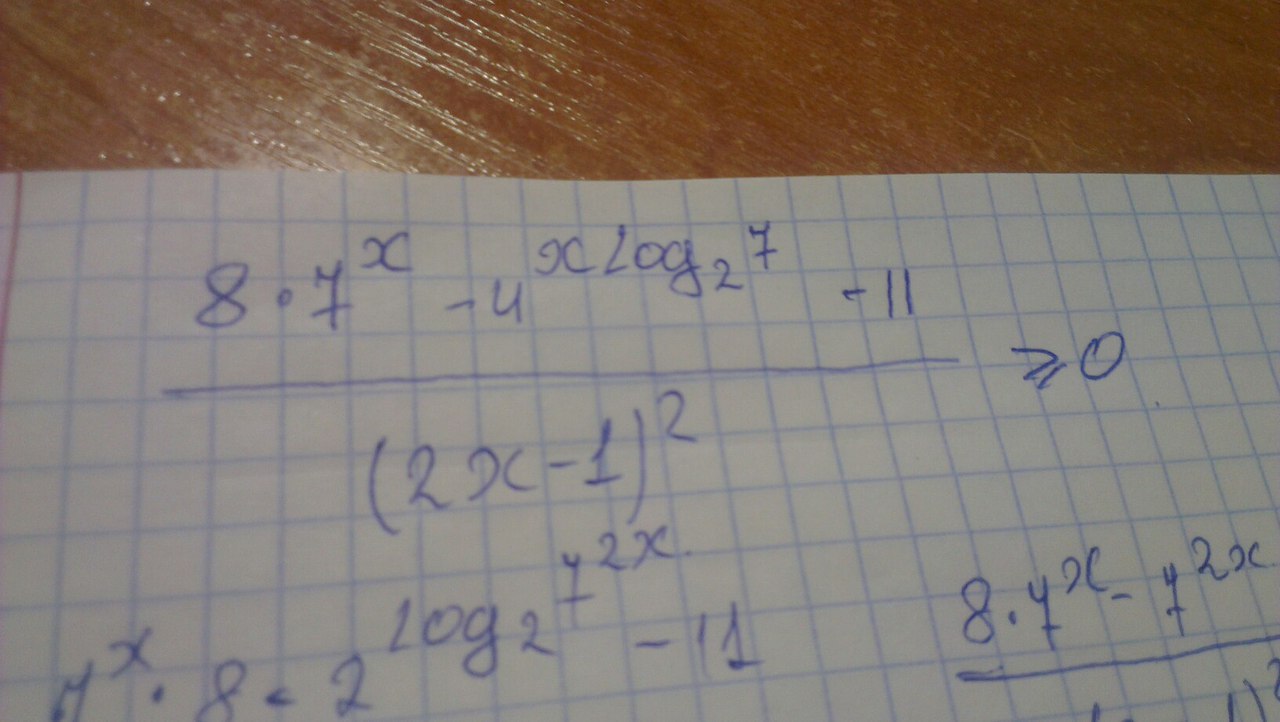 8·7^x - 4^(x log₂ 7) - 11
(2x-1)² ⩾ 0
7^x · 8 - 2^(log₂ 7^(2x)) - 11
8·7^x - 7^(2x)